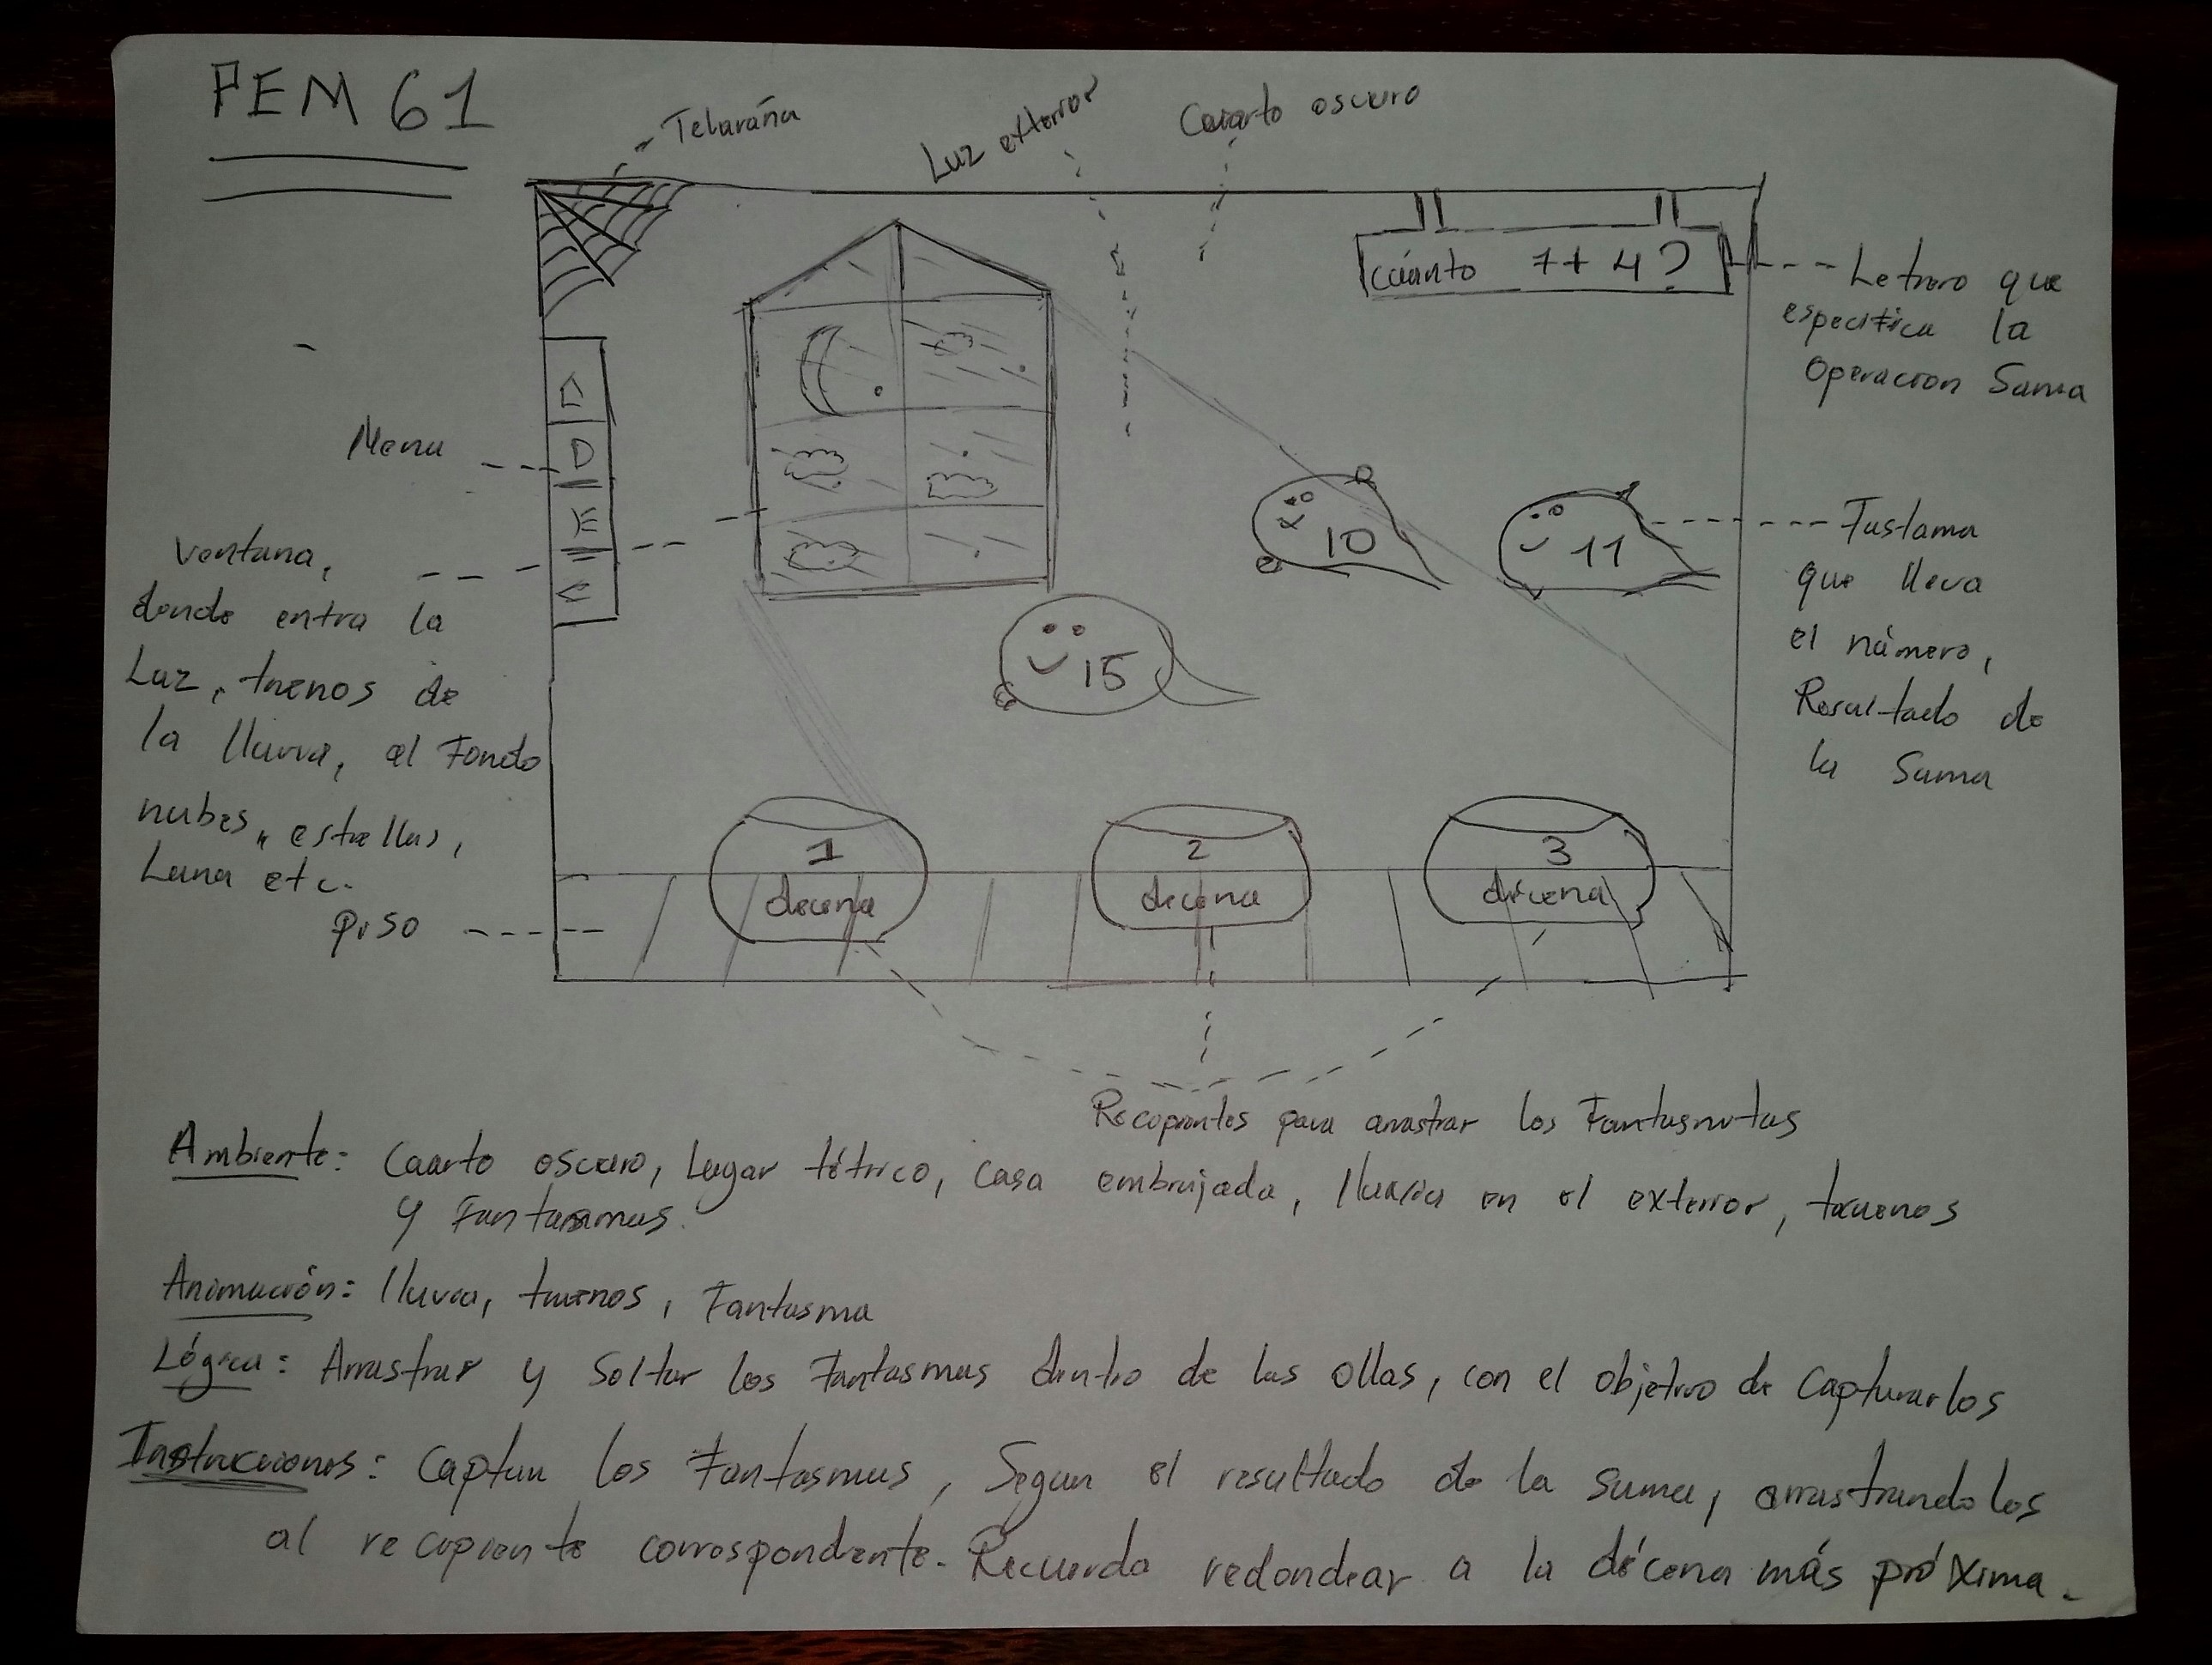 PEM 61
Telaraña
Luz exterior
Cuarto oscuro
cuánto 7+4?
Letrero que
especifica la
Operacion Suma
Menu
D
E
C
Ventana,
donde entra la
Luz, truenos de
la lluvia, al Fondo
nubes, estrellas,
Luna etc.
piso
10
11
15
Fastama
que lleva
el número,
Resultado de
la Suma
1
decena
2
decena
3
decena
Recipientes para arrastrar los Fantasmitas
Ambiente: Cuarto oscuro, Lugar tétrico, casa embrujada, lluvia en el exterior, truenos
y Fantasmas.
Animación: lluvia, truenos, Fantasma
Lógica: Arrastrar y Soltar los Fantasmas dentro de las ollas, con el objetivo de Capturarlos
Instrucciones: Captura los Fantasmas, Segun el resultado de la suma, arrastrandolos
al recipiente correspondiente. Recuerda redondear a la décena más próxima.